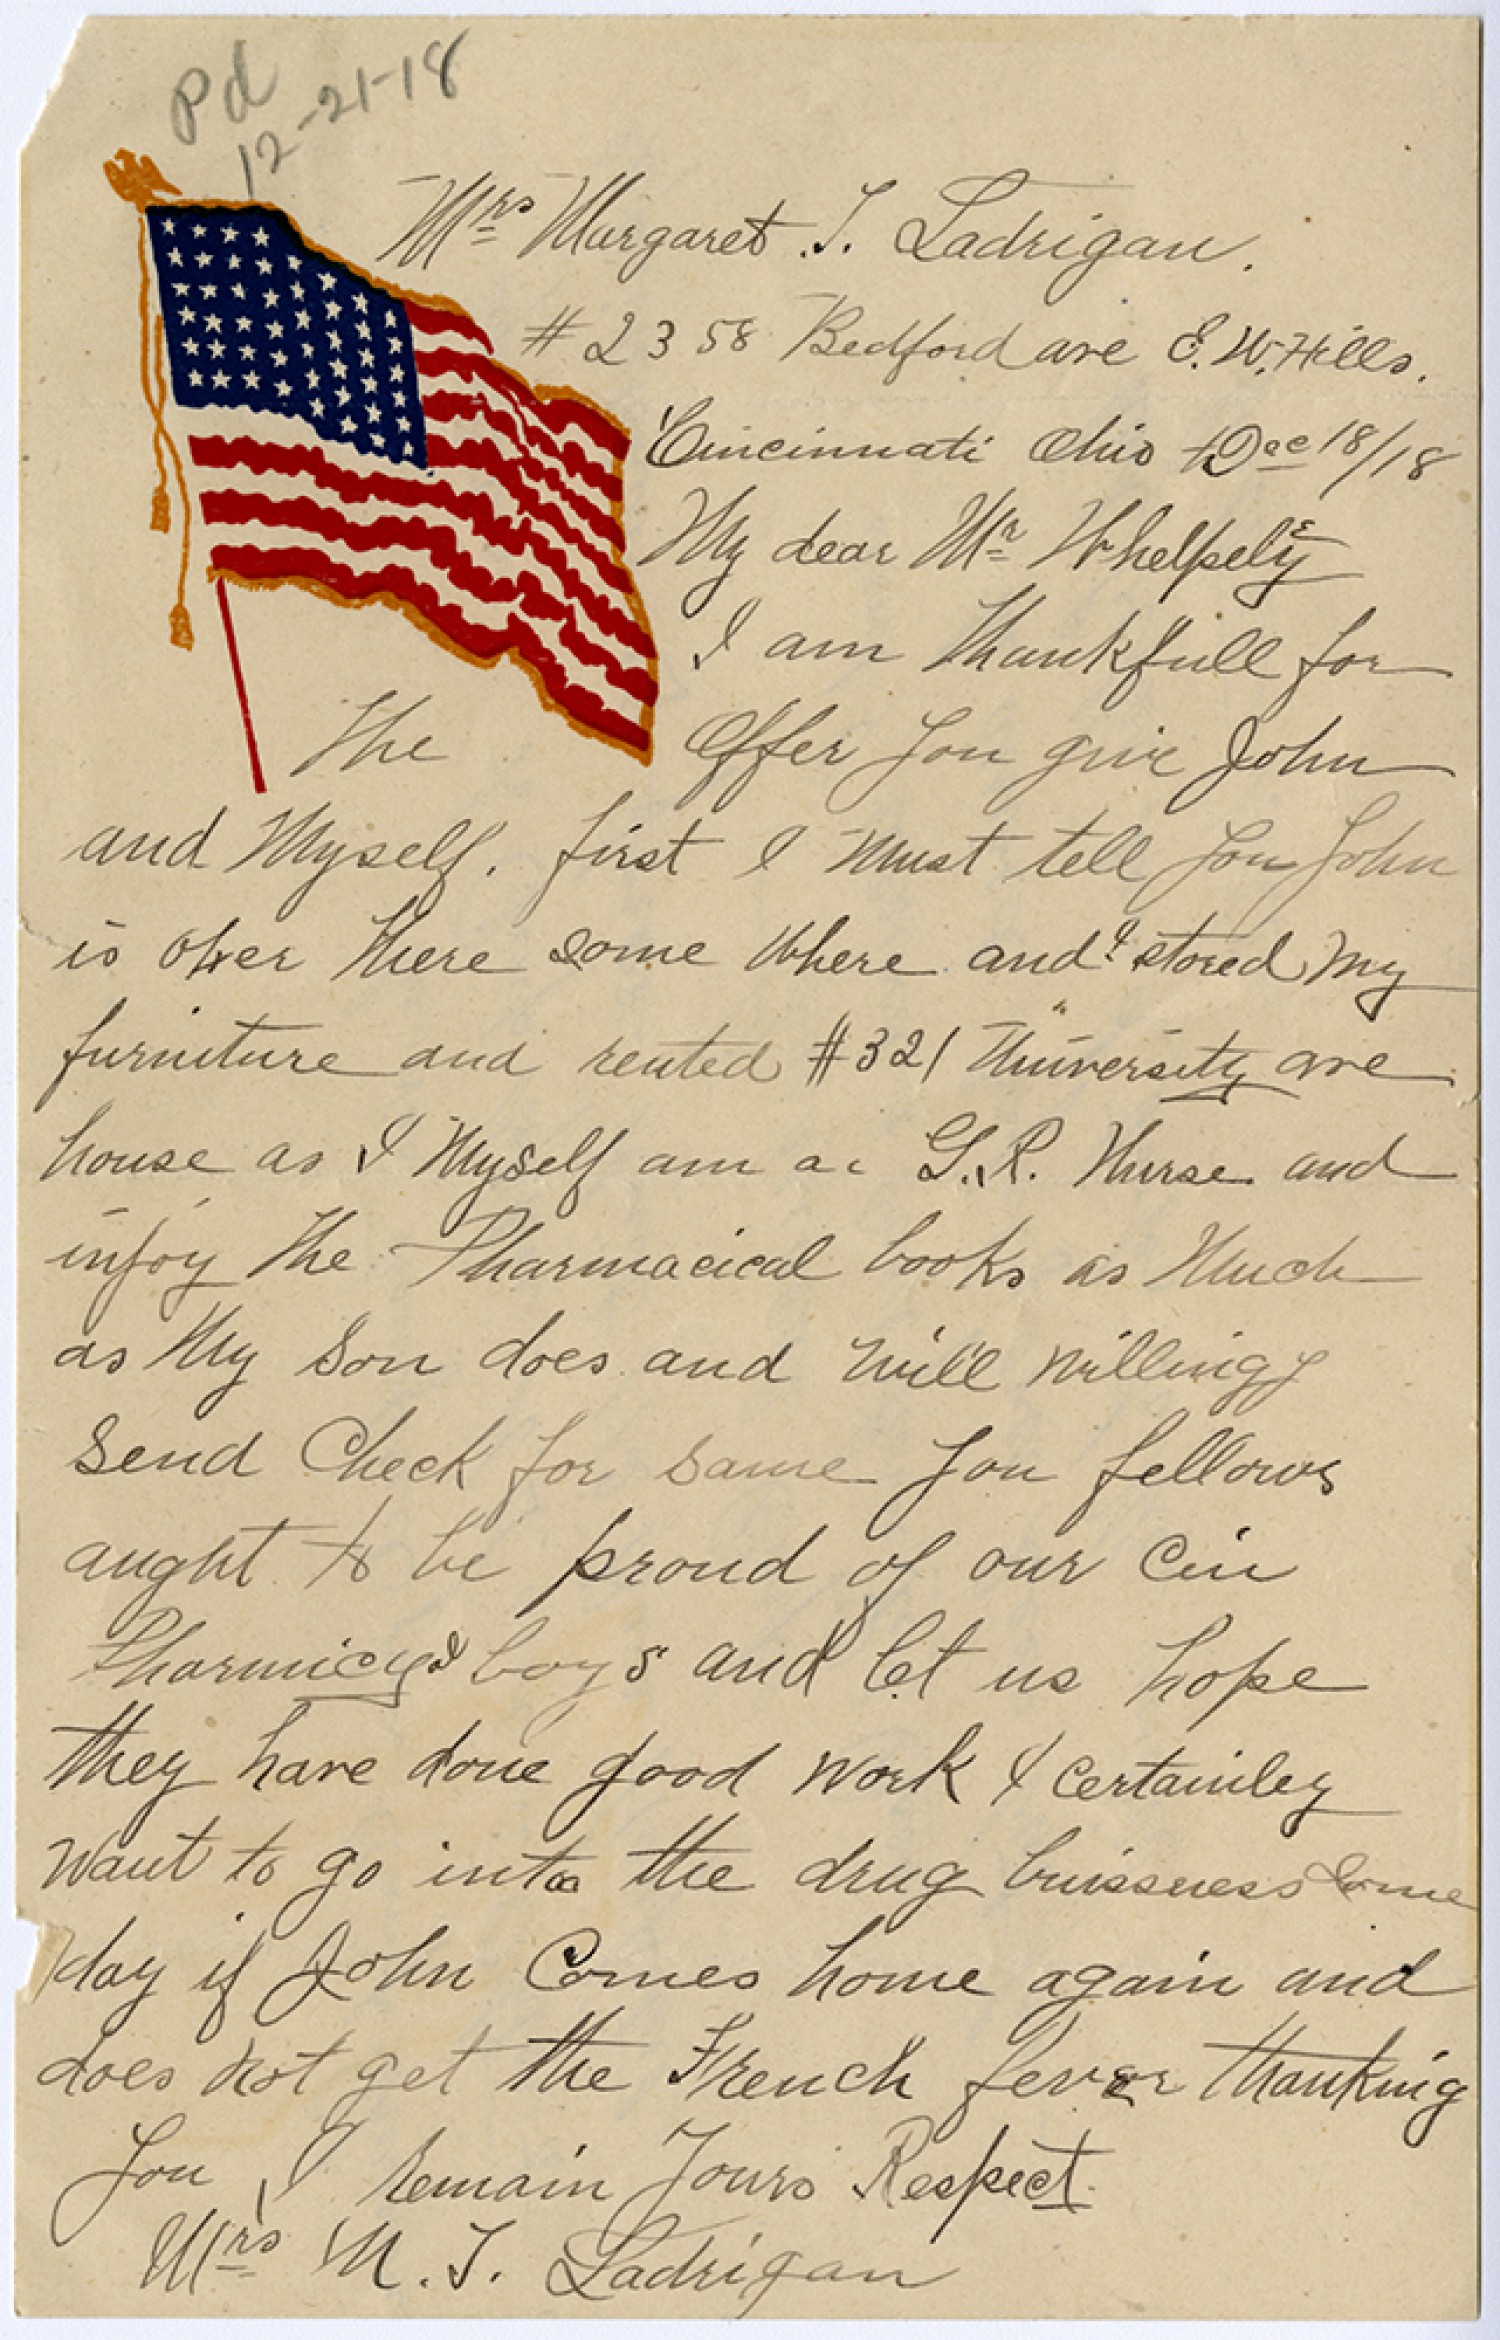 Pd
12-21-18
Mrs Margaret T. Ladrigan.
#2358 Bedford ave E. W. Hills.
Cincinnati Ohio Dec 18/18
My dear Mr Whelpely
I am thankfull for
the offer you give John
and Myself. first I must tell you John
is over there some where and I stored my
furniture and rented #321 University ave
house as I Myself am a G.R. Nurse and
injoy the Pharmacical books as Much
as My son does and will willingy
send Check for same you fellows
aught to be proud of our Cin
Pharmicy boys and let us hope
they have done good work & certainley
want to go into the drug buissness some
day if John Comes home again and
does not get the French fever thanking
you I remain Yours Respect.
Mrs M. T. Ladrigan